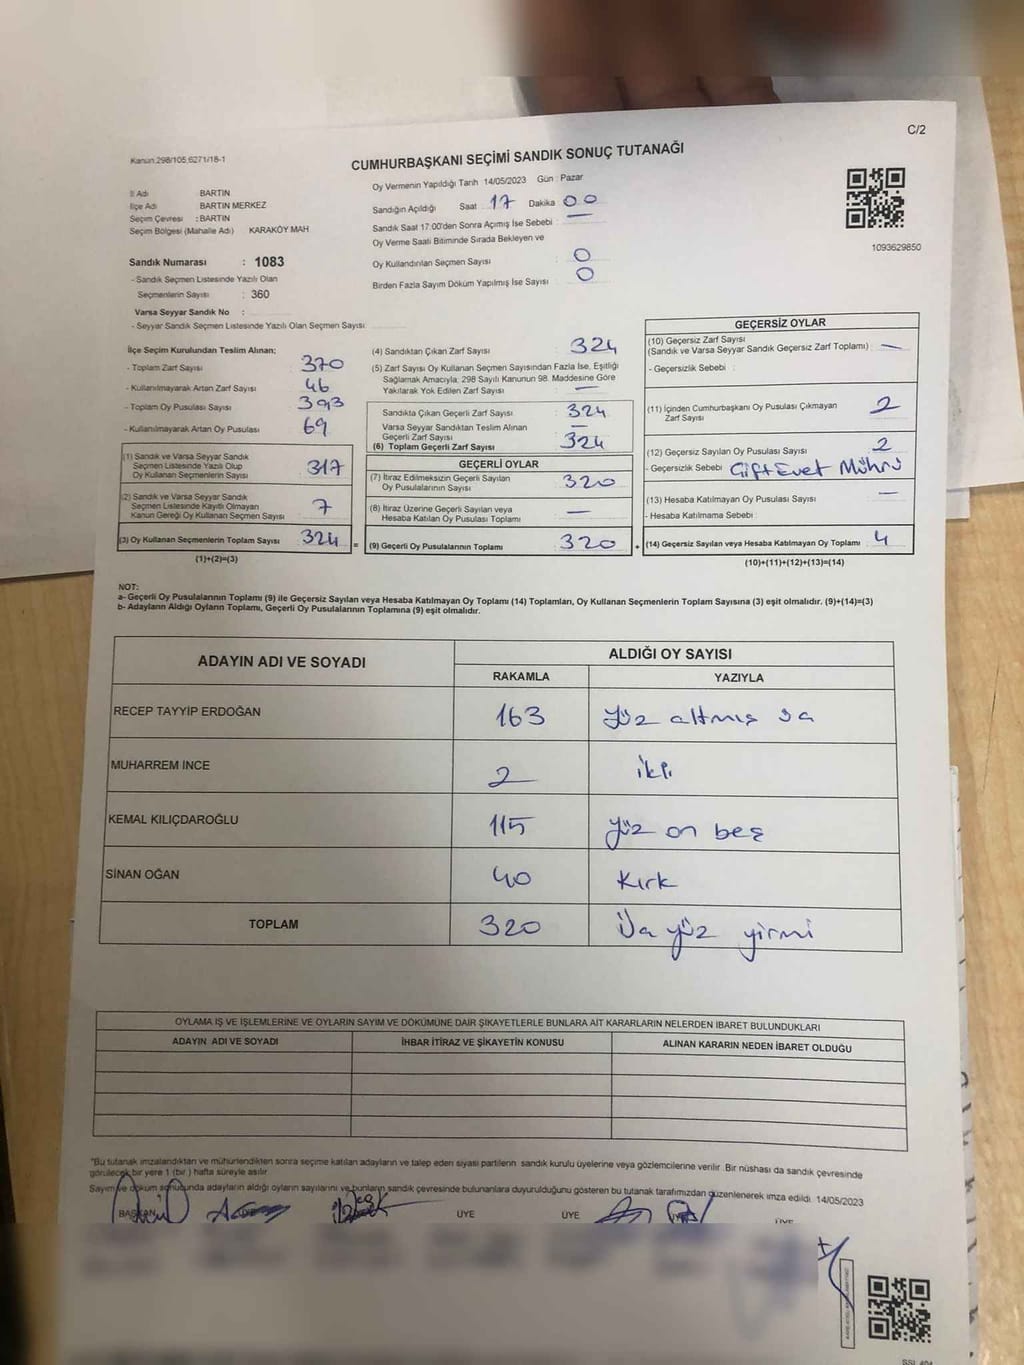 C/2
Kanun:298/105,6271/18-1
CUMHURBAŞKANI SEÇİMİ SANDIK SONUÇ TUTANAĞI
İl Adı BARTIN
İlçe Adı BARTIN MERKEZ
Seçim Çevresi : BARTIN
Seçim Bölgesi (Mahalle Adı) KARAKÖY MAH
Sandık Numarası : 1083
- Sandık Seçmen Listesinde Yazılı Olan
Seçmenlerin Sayısı : 360
Varsa Seyyar Sandık No :
- Seyyar Sandık Seçmen Listesinde Yazılı Olan Seçmen Sayısı:
Oy Vermenin Yapıldığı Tarih 14/05/2023 Gün : Pazar
Sandığın Açıldığı Saat 17 Dakika 00
Sandık Saat 17:00'den Sonra Açımış İse Sebebi : —
Oy Verme Saati Bitiminde Sırada Bekleyen ve
Oy Kullandırılan Seçmen Sayısı : 0
Birden Fazla Sayım Döküm Yapılmış İse Sayısı : 0
1093629850
İlçe Seçim Kurulundan Teslim Alınan;
- Toplam Zarf Sayısı 370
- Kullanılmayarak Artan Zarf Sayısı 46
- Toplam Oy Pusulası Sayısı 393
- Kullanılmayarak Artan Oy Pusulası 69
(1) Sandık ve Varsa Seyyar Sandık
Seçmen Listesinde Yazılı Olup
Oy Kullanan Seçmenlerin Sayısı 317
(2) Sandık ve Varsa Seyyar Sandık
Seçmen Listesinde Kayıtlı Olmayan
Kanun Gereği Oy Kullanan Seçmen Sayısı 7
(3) Oy Kullanan Seçmenlerin Toplam Sayısı 324 =
(1)+(2)=(3)
(4) Sandıktan Çıkan Zarf Sayısı 324
(5) Zarf Sayısı Oy Kullanan Seçmen Sayısından Fazla İse, Eşitliği
Sağlamak Amacıyla; 298 Sayılı Kanunun 98. Maddesine Göre
Yakılarak Yok Edilen Zarf Sayısı —
Sandıkta Çıkan Geçerli Zarf Sayısı 324
Varsa Seyyar Sandıktan Teslim Alınan
Geçerli Zarf Sayısı —
(6) Toplam Geçerli Zarf Sayısı 324
GEÇERLİ OYLAR
(7) İtiraz Edilmeksizin Geçerli Sayılan
Oy Pusulalarının Sayısı 320
(8) İtiraz Üzerine Geçerli Sayılan veya
Hesaba Katılan Oy Pusulası Toplamı —
(9) Geçerli Oy Pusulalarının Toplamı 320 +
GEÇERSİZ OYLAR
(10) Geçersiz Zarf Sayısı
(Sandık ve Varsa Seyyar Sandık Geçersiz Zarf Toplamı) —
- Geçersizlik Sebebi :
(11) İçinden Cumhurbaşkanı Oy Pusulası Çıkmayan
Zarf Sayısı 2
(12) Geçersiz Sayılan Oy Pusulası Sayısı 2
- Geçersizlik Sebebi : Çift Evet Mührü
(13) Hesaba Katılmayan Oy Pusulası Sayısı —
- Hesaba Katılmama Sebebi :
(14) Geçersiz Sayılan veya Hesaba Katılmayan Oy Toplamı 4
(10)+(11)+(12)+(13)=(14)
NOT:
a- Geçerli Oy Pusulalarının Toplamı (9) ile Geçersiz Sayılan veya Hesaba Katılmayan Oy Toplamı (14) Toplamları, Oy Kullanan Seçmenlerin Toplam Sayısına (3) eşit olmalıdır. (9)+(14)=(3)
b- Adayların Aldığı Oyların Toplamı, Geçerli Oy Pusulalarının Toplamına (9) eşit olmalıdır.
ADAYIN ADI VE SOYADI ALDIĞI OY SAYISI
RAKAMLA YAZIYLA
RECEP TAYYİP ERDOĞAN 163 Yüz altmış üç
MUHARREM İNCE 2 iki
KEMAL KILIÇDAROĞLU 115 Yüz on beş
SİNAN OĞAN 40 Kırk
TOPLAM 320 Üç yüz yirmi
OYLAMA İŞ VE İŞLEMLERİNE VE OYLARIN SAYIM VE DÖKÜMÜNE DAİR ŞİKAYETLERLE BUNLARA AİT KARARLARIN NELERDEN İBARET BULUNDUKLARI
ADAYIN ADI VE SOYADI İHBAR İTİRAZ VE ŞİKAYETİN KONUSU ALINAN KARARIN NEDEN İBARET OLDUĞU
"Bu tutanak imzalandıktan ve mühürlendikten sonra seçime katılan adayların ve talep eden siyasi partilerin sandık kurulu üyelerine veya gözlemcilerine verilir. Bir nüshası da sandık çevresinde
görülecek bir yere 1 (bir ) hafta süreyle asılır
Sayım ve döküm sonucunda adayların aldığı oyların sayılarını ve bunların sandık çevresinde bulunanlara duyurulduğunu gösteren bu tutanak tarafımızdan düzenlenerek imza edildi. 14/05/2023
BAŞKAN ÜYE ÜYE ÜYE